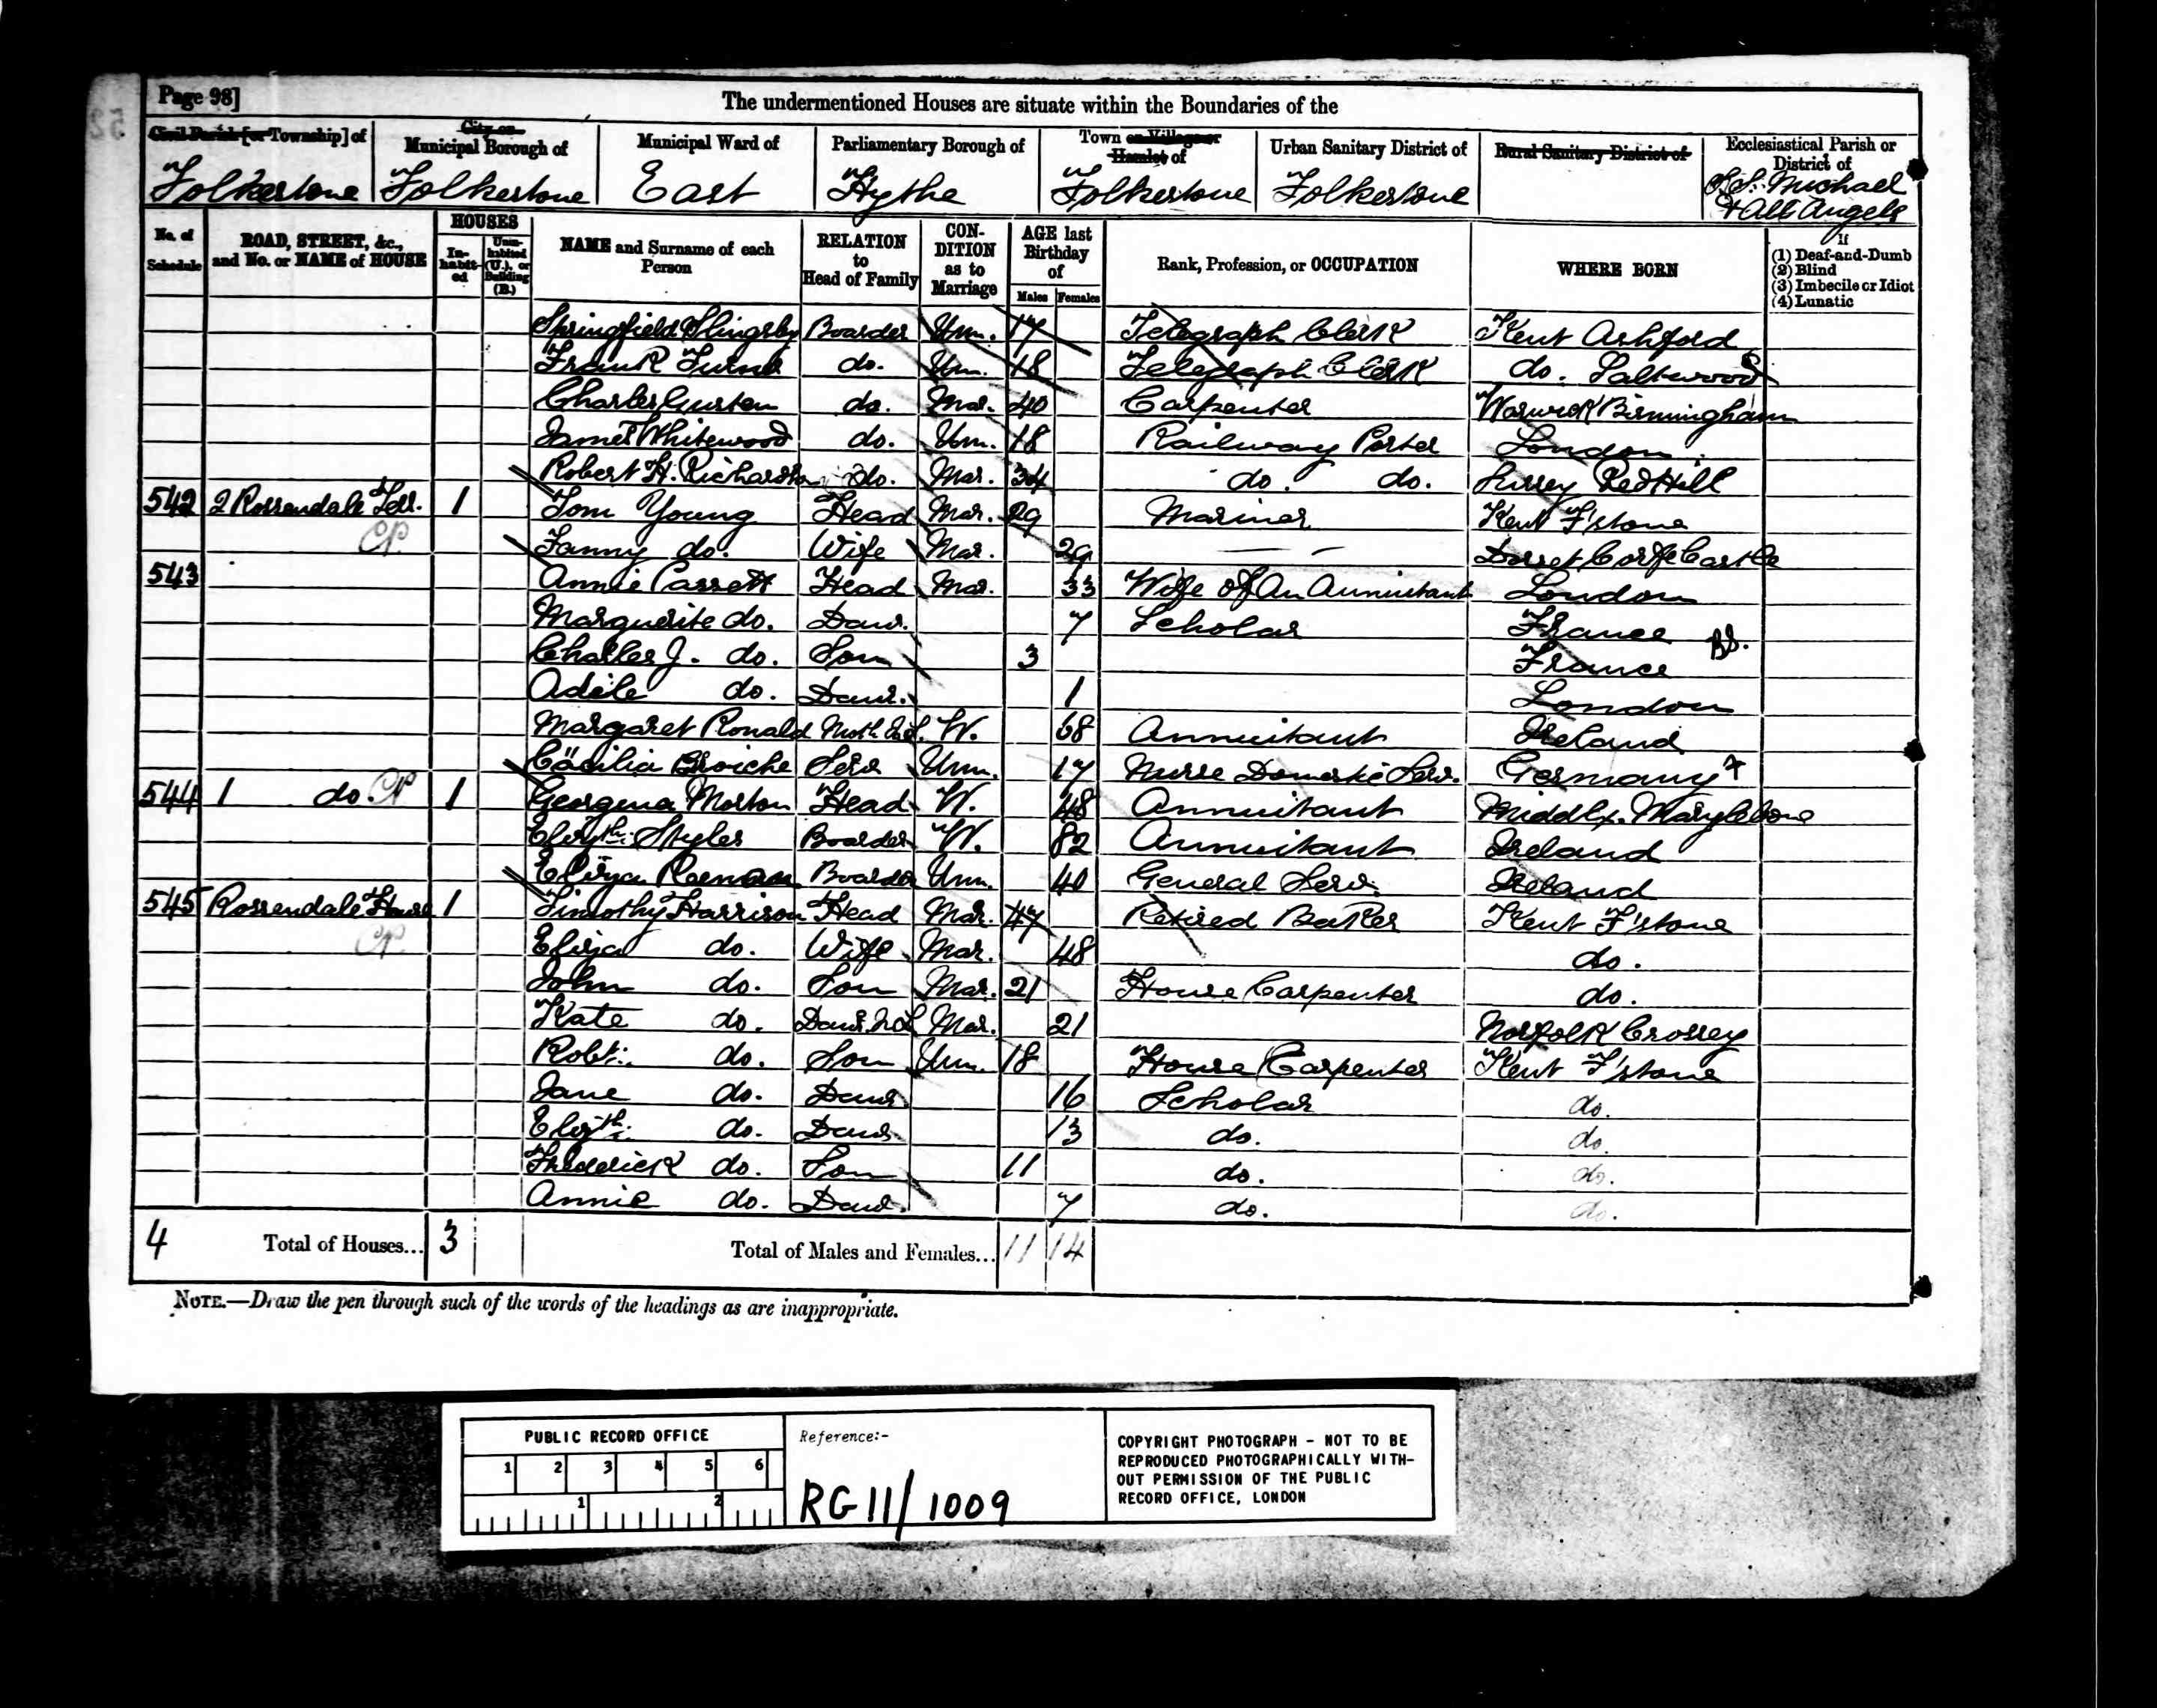 Page 98]
The undermentioned Houses are situate within the Boundaries of the
Civil Parish [or Township] of
City or Municipal Borough of
Municipal Ward of
Parliamentary Borough of
Town or Village or Hamlet of
Urban Sanitary District of
Rural Sanitary District of
Ecclesiastical Parish or District of
Folkestone Folkestone East Hythe Folkestone Folkestone St. Michael & All Angels
No. of Schedule
ROAD, STREET, &c., and No. or NAME of HOUSE
HOUSES
In-habit-ed
Unin-habited (U.), or Building (B.)
NAME and Surname of each Person
RELATION to Head of Family
CON-DITION as to Marriage
AGE last Birthday of
Males Females
Rank, Profession, or OCCUPATION
WHERE BORN
If
(1) Deaf-and-Dumb
(2) Blind
(3) Imbecile or Idiot
(4) Lunatic
Springfield Slingsby Boarder Unm. 17 Telegraph Clerk Kent Ashford
Frank do. Unm. 18 Telegraph Clerk do. Saltwood
Charles do. Mar. 40 Carpenter Warwick Birmingham
James Whitewood do. Unm. 18 Railway Porter London
Robert H. Richardson do. Mar. 34 do. do. Surrey Red Hill
542 2 Rossendale Terr. 1 Tom Young Head Mar. 29 Mariner Kent F'stone
Fanny do. Wife Mar. 29 — Dorset Corfe Castle
543 Annie Head Mar. 33 Wife of An Annuitant London
Marguerite do. Daur. 7 Scholar France
Charles J. do. Son 3 France BS.
Adéle do. Daur. 1 London
Margaret Ronald Moth. in L. W. 68 Annuitant Ireland
Cäcilia Serv Unm. 17 Nurse Domestic Serv. Germany
544 1 do. 1 Georgina Morton Head W. 48 Annuitant Middlx. Marylebone
Elizth. Styles Boarder W. 82 Annuitant Ireland
Eliza Boarder Unm. 40 General Serv. Ireland
545 Rossendale House 1 Timothy Harrison Head Mar. 47 Retired Baker Kent F'stone
Eliza do. Wife Mar. 48 do.
John do. Son Mar. 21 House Carpenter do.
Kate do. Daur. in L Mar. 21 Norfolk
Robt. do. Son Unm. 18 House Carpenter Kent F'stone
Jane do. Daur. 16 Scholar do.
Elizth. do. Daur. 13 do. do.
Frederick do. Son 11 do. do.
Annie do. Daur. 7 do. do.
4 Total of Houses... 3 Total of Males and Females... 11 14
NOTE.—Draw the pen through such of the words of the headings as are inappropriate.
PUBLIC RECORD OFFICE
1 2 3 4 5 6
1 2
Reference:-
RG 11/1009
COPYRIGHT PHOTOGRAPH - NOT TO BE
REPRODUCED PHOTOGRAPHICALLY WITH-
OUT PERMISSION OF THE PUBLIC
RECORD OFFICE, LONDON